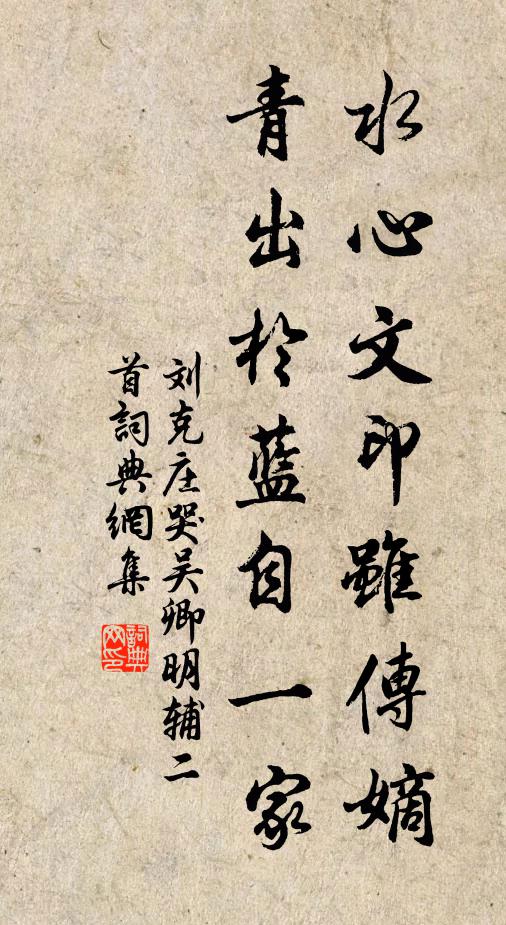 水心文印雖傳嫡
青出於藍自一家
刘克庄哭吴卿明辅二
首詞典網集
詞典网印